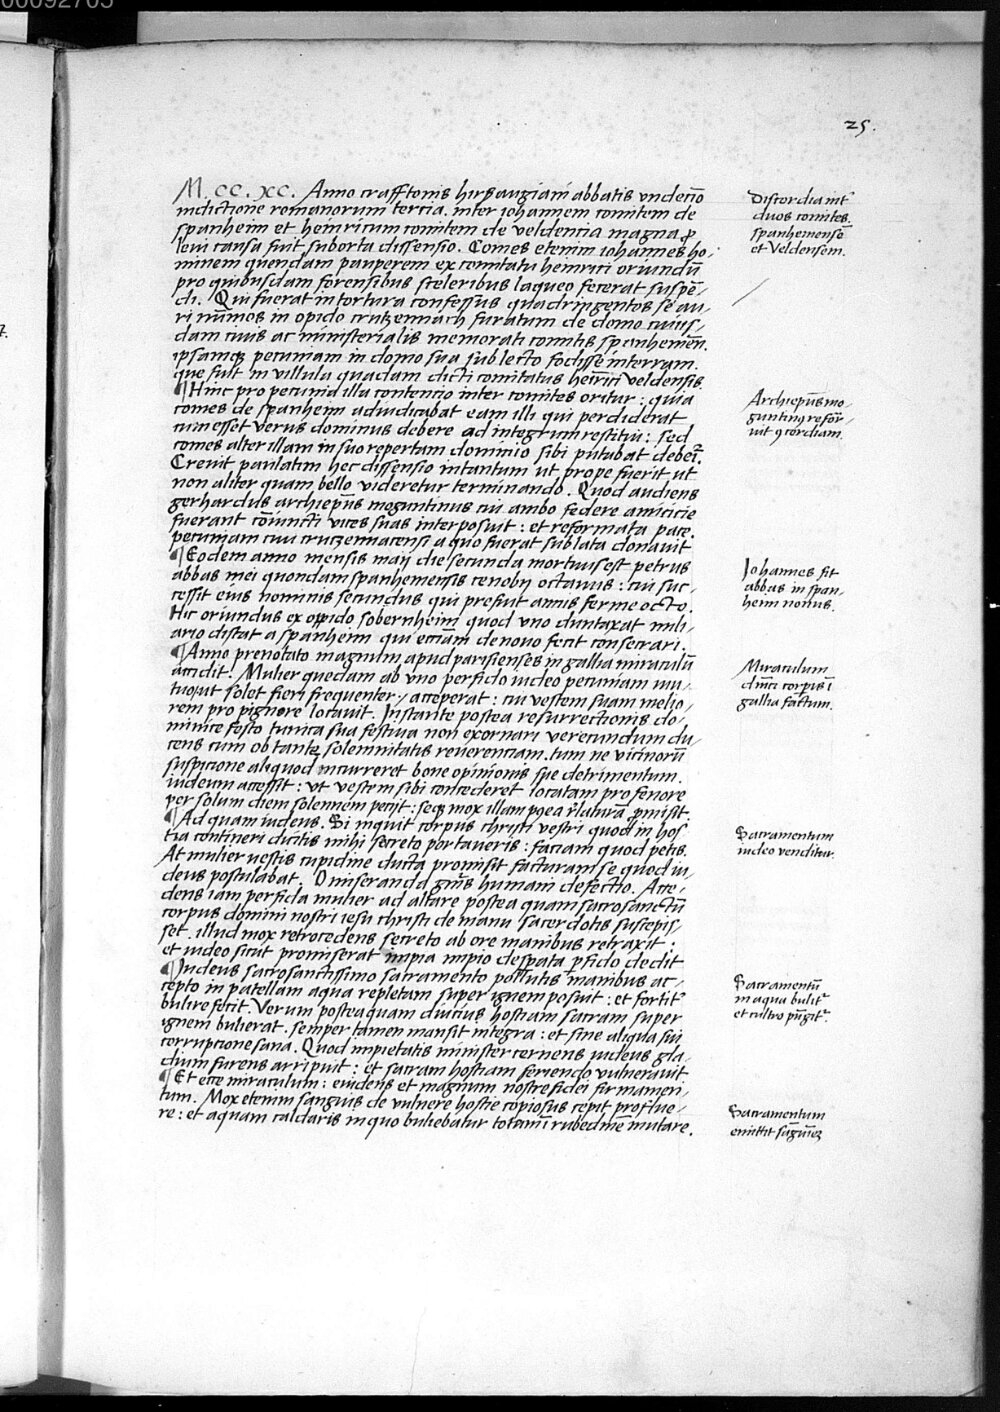 00092705
25.
M. CC. XC. Anno crafftonis hirsaugiani abbatis undecīo
indictione romanorum tercia. inter iohannem comitem de
spanheim et heinricum comitem de veldencia magna ꝓ
levi causa fuit suborta dissensio. Comes etenim iohannes ho-
minem quendam pauperem ex comitatu heinrici oriundū
pro quibusdam forensibus sceleribus laqueo fecerat suspē-
di. Qui fuerat in tortura confessus quadringentos se au-
ri nūmos in opido crutzennach furatum de domo cuius-
dam civis ac ministerialis memorati comitis spanhemēn.
ipsamqꝫ pecuniam in domo sua sub lecto fodisse in terram.
que fuit in villula quadam dicti comitatus heīrici veldensis.
¶ Hinc pro pecunia illa contencio inter comites oritur: quia
comes de spanheim adiudicabat eam illi qui perdiderat
cum esset verus dominus debere ad integrum restitui: sed
comes alter illam in suo repertam dominio sibi putabat deberī.
Crevit paulatim hec dissensio intantum ut prope fuerit ut
non aliter quam bello videretur terminando. Quod audiens
gerhardus archiep̄us moguntinus cui ambo federe amicicie
fuerant cōiuncti vices suas interposuit: et reformata pace.
pecuniam civi crutzennacensi a quo fuerat sublata donavit
¶ Eodem anno mensis maij die secunda mortuus est petrus
abbas mei quondam spanhemensis cenobij octavus: cui suc-
cessit eius nominis secundus qui prefuit annis ferme octo.
Hic oriundus ex oppido sobernheim quod uno duntaxat mili-
ario distat a spanheim qui ecciam denovo fecit consecrari.
¶ Anno prenotato magnum apud parisienses in gallia miraculū
accidit. Mulier quedam ab uno perfido iudeo pecuniam mu-
tuo, ut solet fieri frequenter, acceperat: cui vestem suam melio-
rem pro pignore locavit. Instante postea resurrectionis do-
minice festo tunica sua festiva non exornari verecundum du-
cens tum ob tante solemnitatis reverenciam. tum ne vicinorū
suspicione aliquod incurreret bone opinionis sue detrimentum.
iudeum accessit: ut vestem sibi concederet locatam pro fenore
per solum diem solennem petijt: seqꝫ mox illam postea r̄laturā ꝓmisit.
¶ Ad quam iudeus. Si inquit corpus christi vestri quod in hos
tia contineri dicitis mihi secreto portaveris: faciam quod petis.
At mulier vestis cupidine ducta promisit facturam se quod iu-
deus postulabat. O miseranda gn̄is humani defectio. Acce-
dens iam perfida mulier ad altare postea quam sacrosanctū
corpus domini nostri iesu christi de manu sacerdotis suscepis-
set. illud mox retrocedens secreto ab ore manibus retraxit:
et iudeo sicut promiserat impia impio desperata perfido dedit
¶ Iudeus sacrosanctissimo sacramento pollutis manibus ac-
cepto in patellam aqua repletam super ignem posuit: et fortiter
bulire fecit. Verum posteaquam diucius hostiam sacram super
ignem bulierat. semper tamen mansit integra: et sine aliqua sui
corrupcione sana. Quod impietatis minister cernens iudeus gla-
dium furens arripuit: et sacram hostiam feriendo vulneravit
¶ Et ecce miraculum: evidens et magnum nostre fidei firmamen-
tum. Mox etenim sanguis de vulnere hostie copiosus cepit proflue-
re: et aquam caldaris in quo buliebatur totam ī rubedinē mutare.
Discordia int̄
duos comites.
spanhemensē
et Veldensem.
Archiep̄us mo-
guntinus refor-
mit ꝯcordiam.
Johannes fit
abbas in span-
heim nonus.
Miraculum
dn̄ici corporis ī
gallia factum.
Sacramentum
iudeo venditur.
Sacramentū
in aqua bulitr̄
et cultro pūgitr̄.
Sacramentum
emittit sāguinē